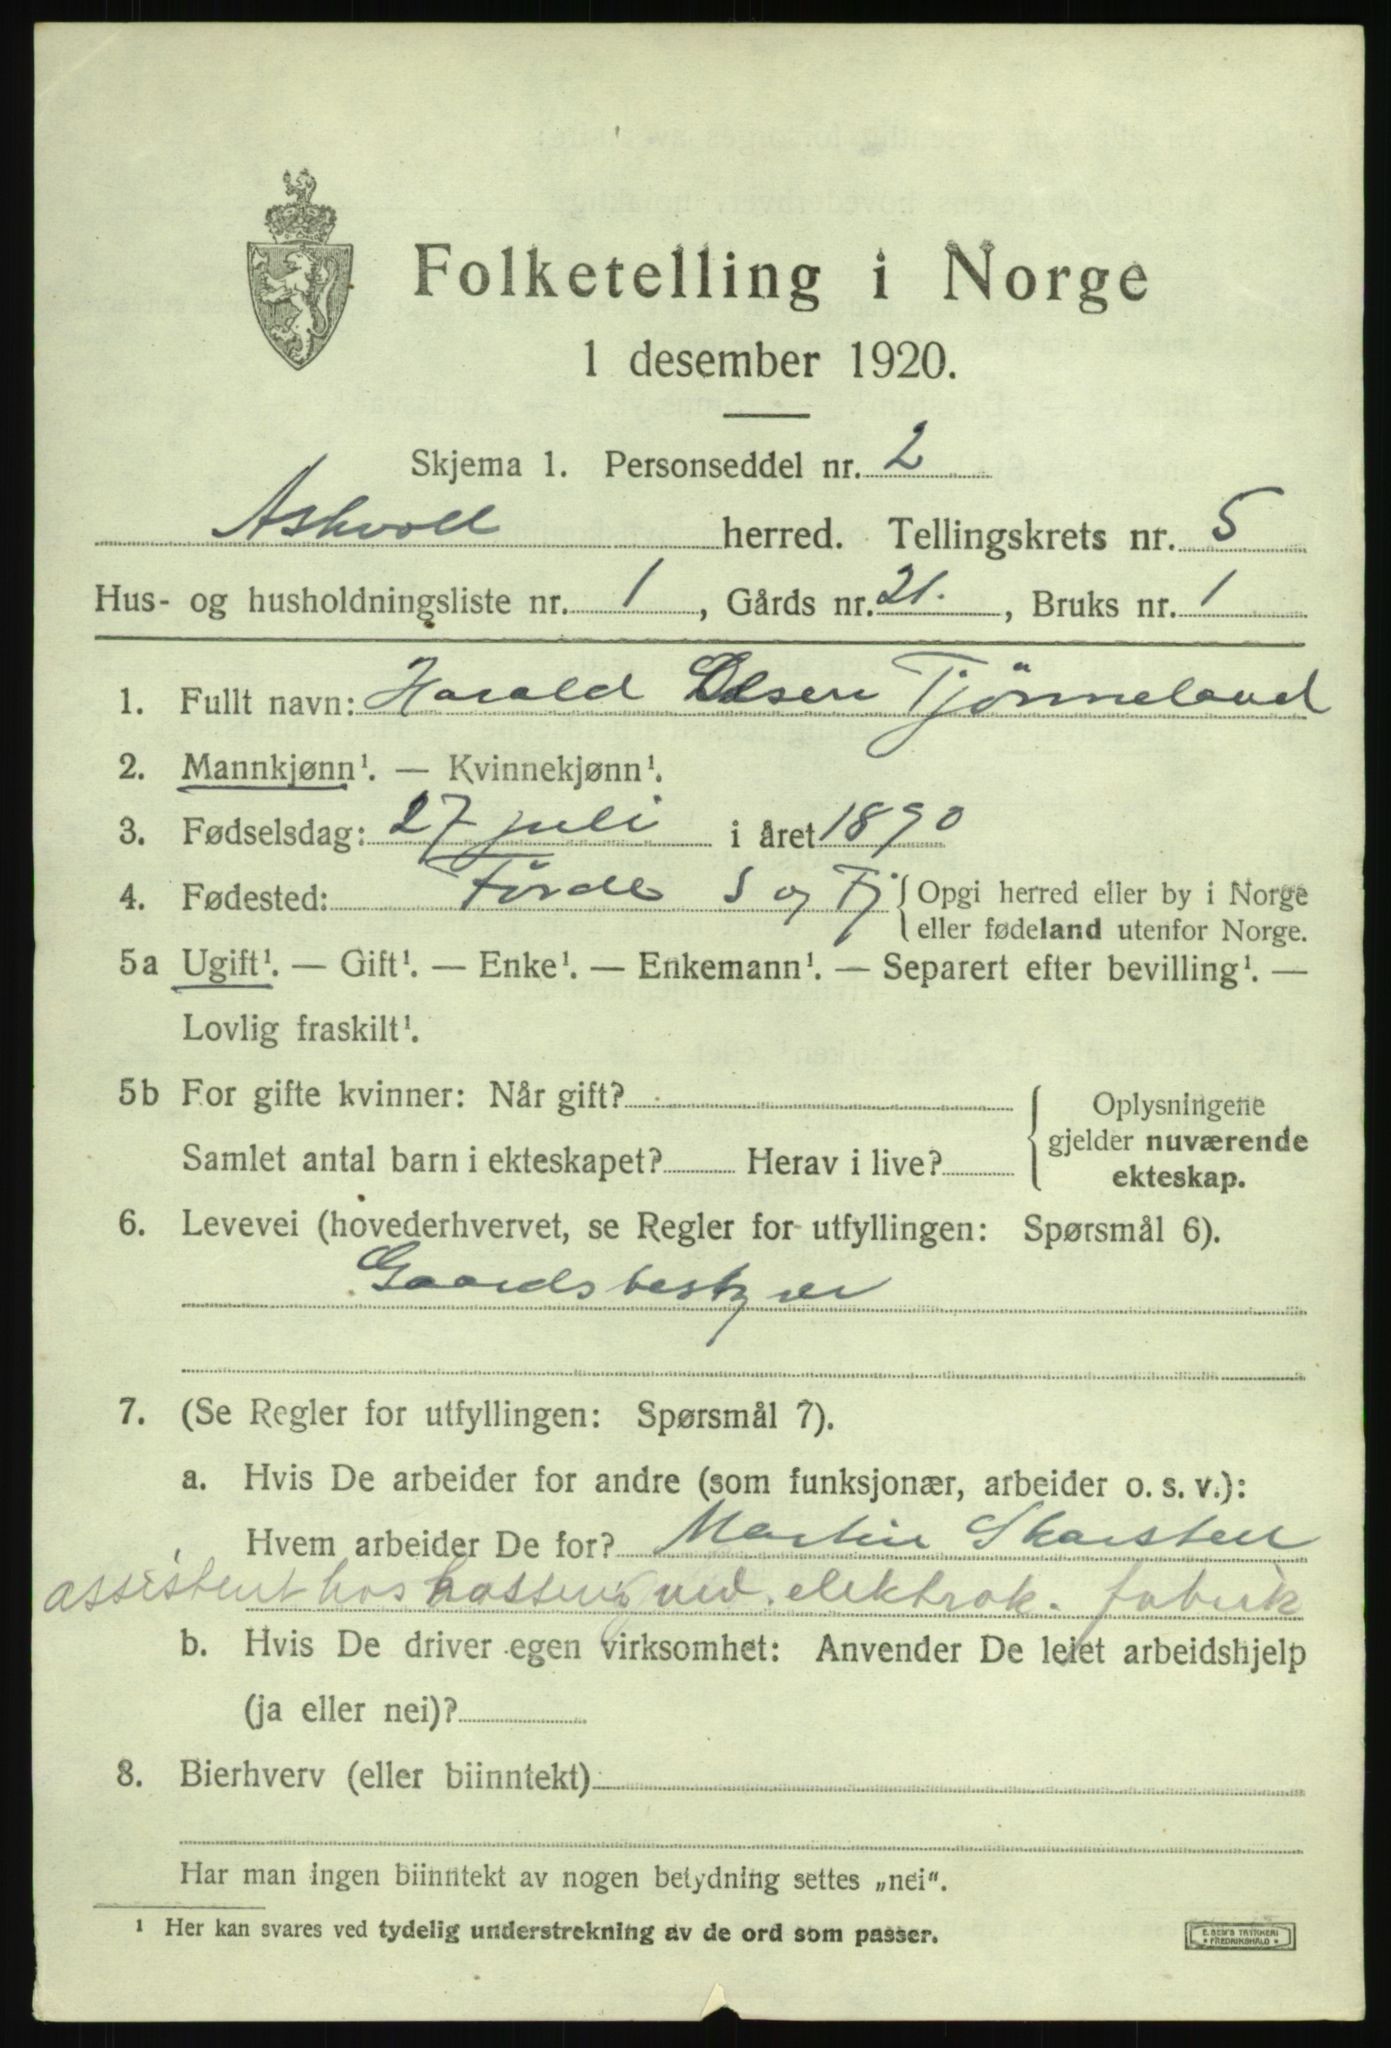 Folketelling i Norge
1 desember 1920.
Skjema 1. Personseddel nr. 2
Askvoll herred. Tellingskrets nr. 5
Hus- og husholdningsliste nr. 1, Gårds nr. 21., Bruks nr. 1
1. Fullt navn: Harald Olsen Tjönneland
2. Mannkjønn¹. — Kvinnekjønn¹.
3. Fødselsdag: 27 juli i året 1890
4. Fødested: Förde S og Fj { Opgi herred eller by i Norge
eller fødeland utenfor Norge.
5a Ugift¹. — Gift¹. — Enke¹. — Enkemann¹. — Separert efter bevilling¹. —
Lovlig fraskilt¹.
5b For gifte kvinner: Når gift?
Samlet antal barn i ekteskapet? Herav i live?
Oplysningene
gjelder nuværende
ekteskap.
6. Levevei (hovederhvervet, se Regler for utfyllingen: Spørsmål 6).
Gaardsbestyrer
7. (Se Regler for utfyllingen: Spørsmål 7).
a. Hvis De arbeider for andre (som funksjonær, arbeider o. s. v.):
Hvem arbeider De for? Martin Skarsten
assistent hos ved elektrok. fabrik
b. Hvis De driver egen virksomhet: Anvender De leiet arbeidshjelp
(ja eller nei)?
8. Bierhverv (eller biinntekt)
Har man ingen biinntekt av nogen betydning settes „nei".
¹ Her kan svares ved tydelig understrekning av de ord som passer.
E. SEM'S TRYKKERI
* FREDRIKSHALD *